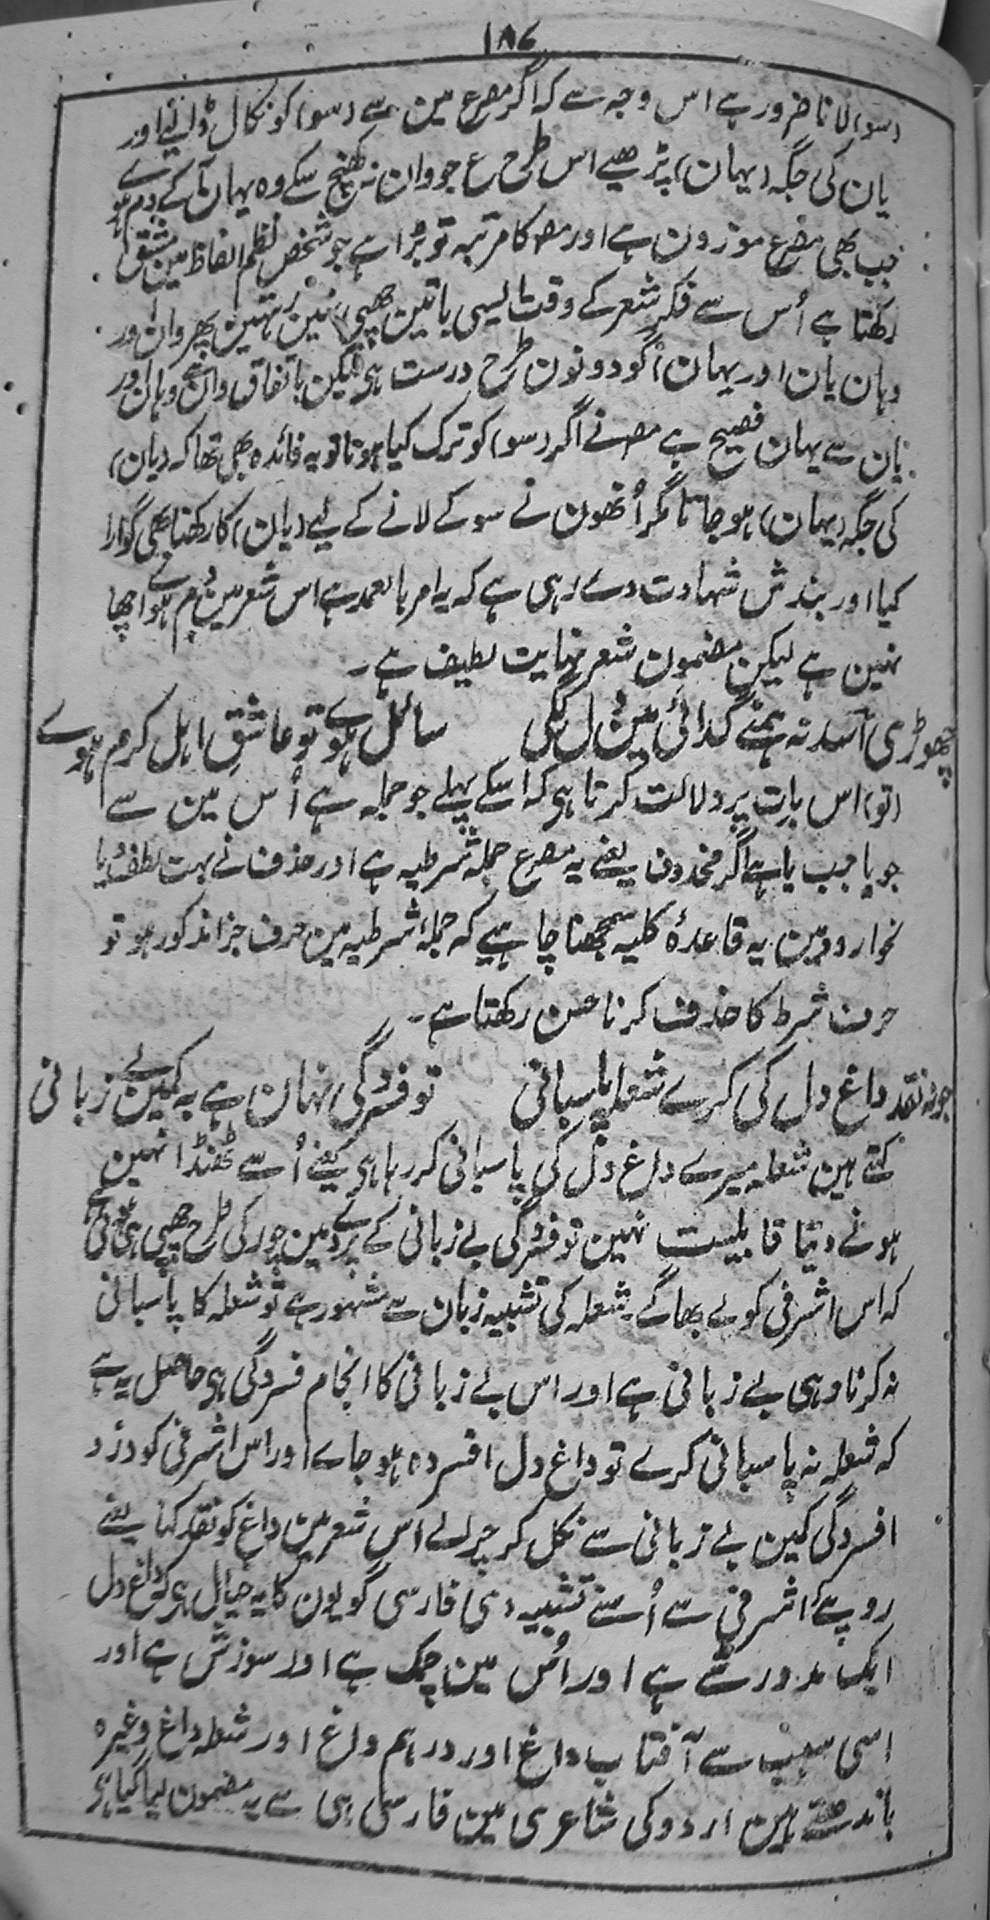 ۱۸۷
(سو) لانا ضرور ہے اس وجہ سے کہ اگر مصرع مین سے (سو) کو نکال ڈالیے اور
یان کی جگہ (یہان) پڑھیے اس طرح ع جو وان نہ کھنچ سکے وہ یہان آ کے دم ہوے
جب بھی مصرع موزون ہے اور مصہ کا مرتبہ تو بڑا ہے جو شخص نظم الفاظ مین مشق
رکھتا ہے اُس سے فکر شعر کے وقت ایسی باتین چھپی نہین رہتین پھر وان اور
وہان یان اور یہان گو دونون طرح درست ہی لیکن باتفاق وان سے وہان اور
یان سے یہان فصیح ہے مصہ نے اگر (سو) کو ترک کیا ہوتا تو یہ فائدہ بھی تھا کہ (یان)
کی جگہ (یہان) ہو جاتا مگر اُنھون نے سو کے لانے کے لیے (یان) کا رکھنا بھی گوارا
کیا اور بندش شہادت دے رہی ہے کہ یہ امر بالعمد ہے اس شعر مین دم ہوے اچھا
نہین ہے لیکن مضمون شعر نہایت لطیف ہے۔
چھوڑی اسد نہ ہمنے گدائی مین دل لگی سائل ہوے تو عاشقِ اہل کرم ہوے
(تو) اس بات پر دلالت کرتا ہی کہ اسکے پہلے جو جملہ ہے اُس مین سے
جو یا جب یا ہے اگر محذوف یعنے یہ مصرع جملۂ شرطیہ ہے اور حذف نے بہت لطف دیا
نحو اردو مین یہ قاعدۂ کلیہ سمجھنا چاہیے کہ جملۂ شرطیہ مین حرف جزا مذکور ہو تو
حرف شرط کا حذف کرنا حسن رکھتا ہے۔
جو نہ نقد داغ دل کی کرے شعلہ پاسبانی تو فسردگی نہان ہے بہ کمین بے زبانی
کہتے ہین شعلہ میرے داغ دل کی پاسبانی کر رہا ہی یعنے اُسے ٹھنڈا نہین
ہونے دیتا قابلیست نہین تو فسردگی بے زبانی کے پردے مین چور کی طرح چھپی ہوئی ہے
کہ اس اشرفی کو لے بھاگے شعلہ کی تشبیہ زبان سے مشہور ہے تو شعلہ کا پاسبانی
نہ کرنا وہی بے زبانی ہے اور اس بے زبانی کا انجام فسردگی ہی حاصل یہ ہے
کہ شعلہ نہ پاسبانی کرے تو داغ دل افسردہ ہو جاے اور اس اشرفی کو دزد
افسردگی کمین بے زبانی سے نکل کر چرالے اس شعر مین داغ کو نقد کہنا یعنے
روپے اشرفی سے اُسنے تشبیہ دی فارسی گویون کا یہ خیال ہی کہ داغ دل
ایک مدور شے ہے اور اُس مین چمک ہے اور سوزش ہے اور
اسی سبب سے آفتاب داغ اور درہم داغ اور شعلہ داغ وغیرہ
باندھتے ہین اردو کی شاعری مین فارسی ہی سے یہ مضمون لیا گیا ہی